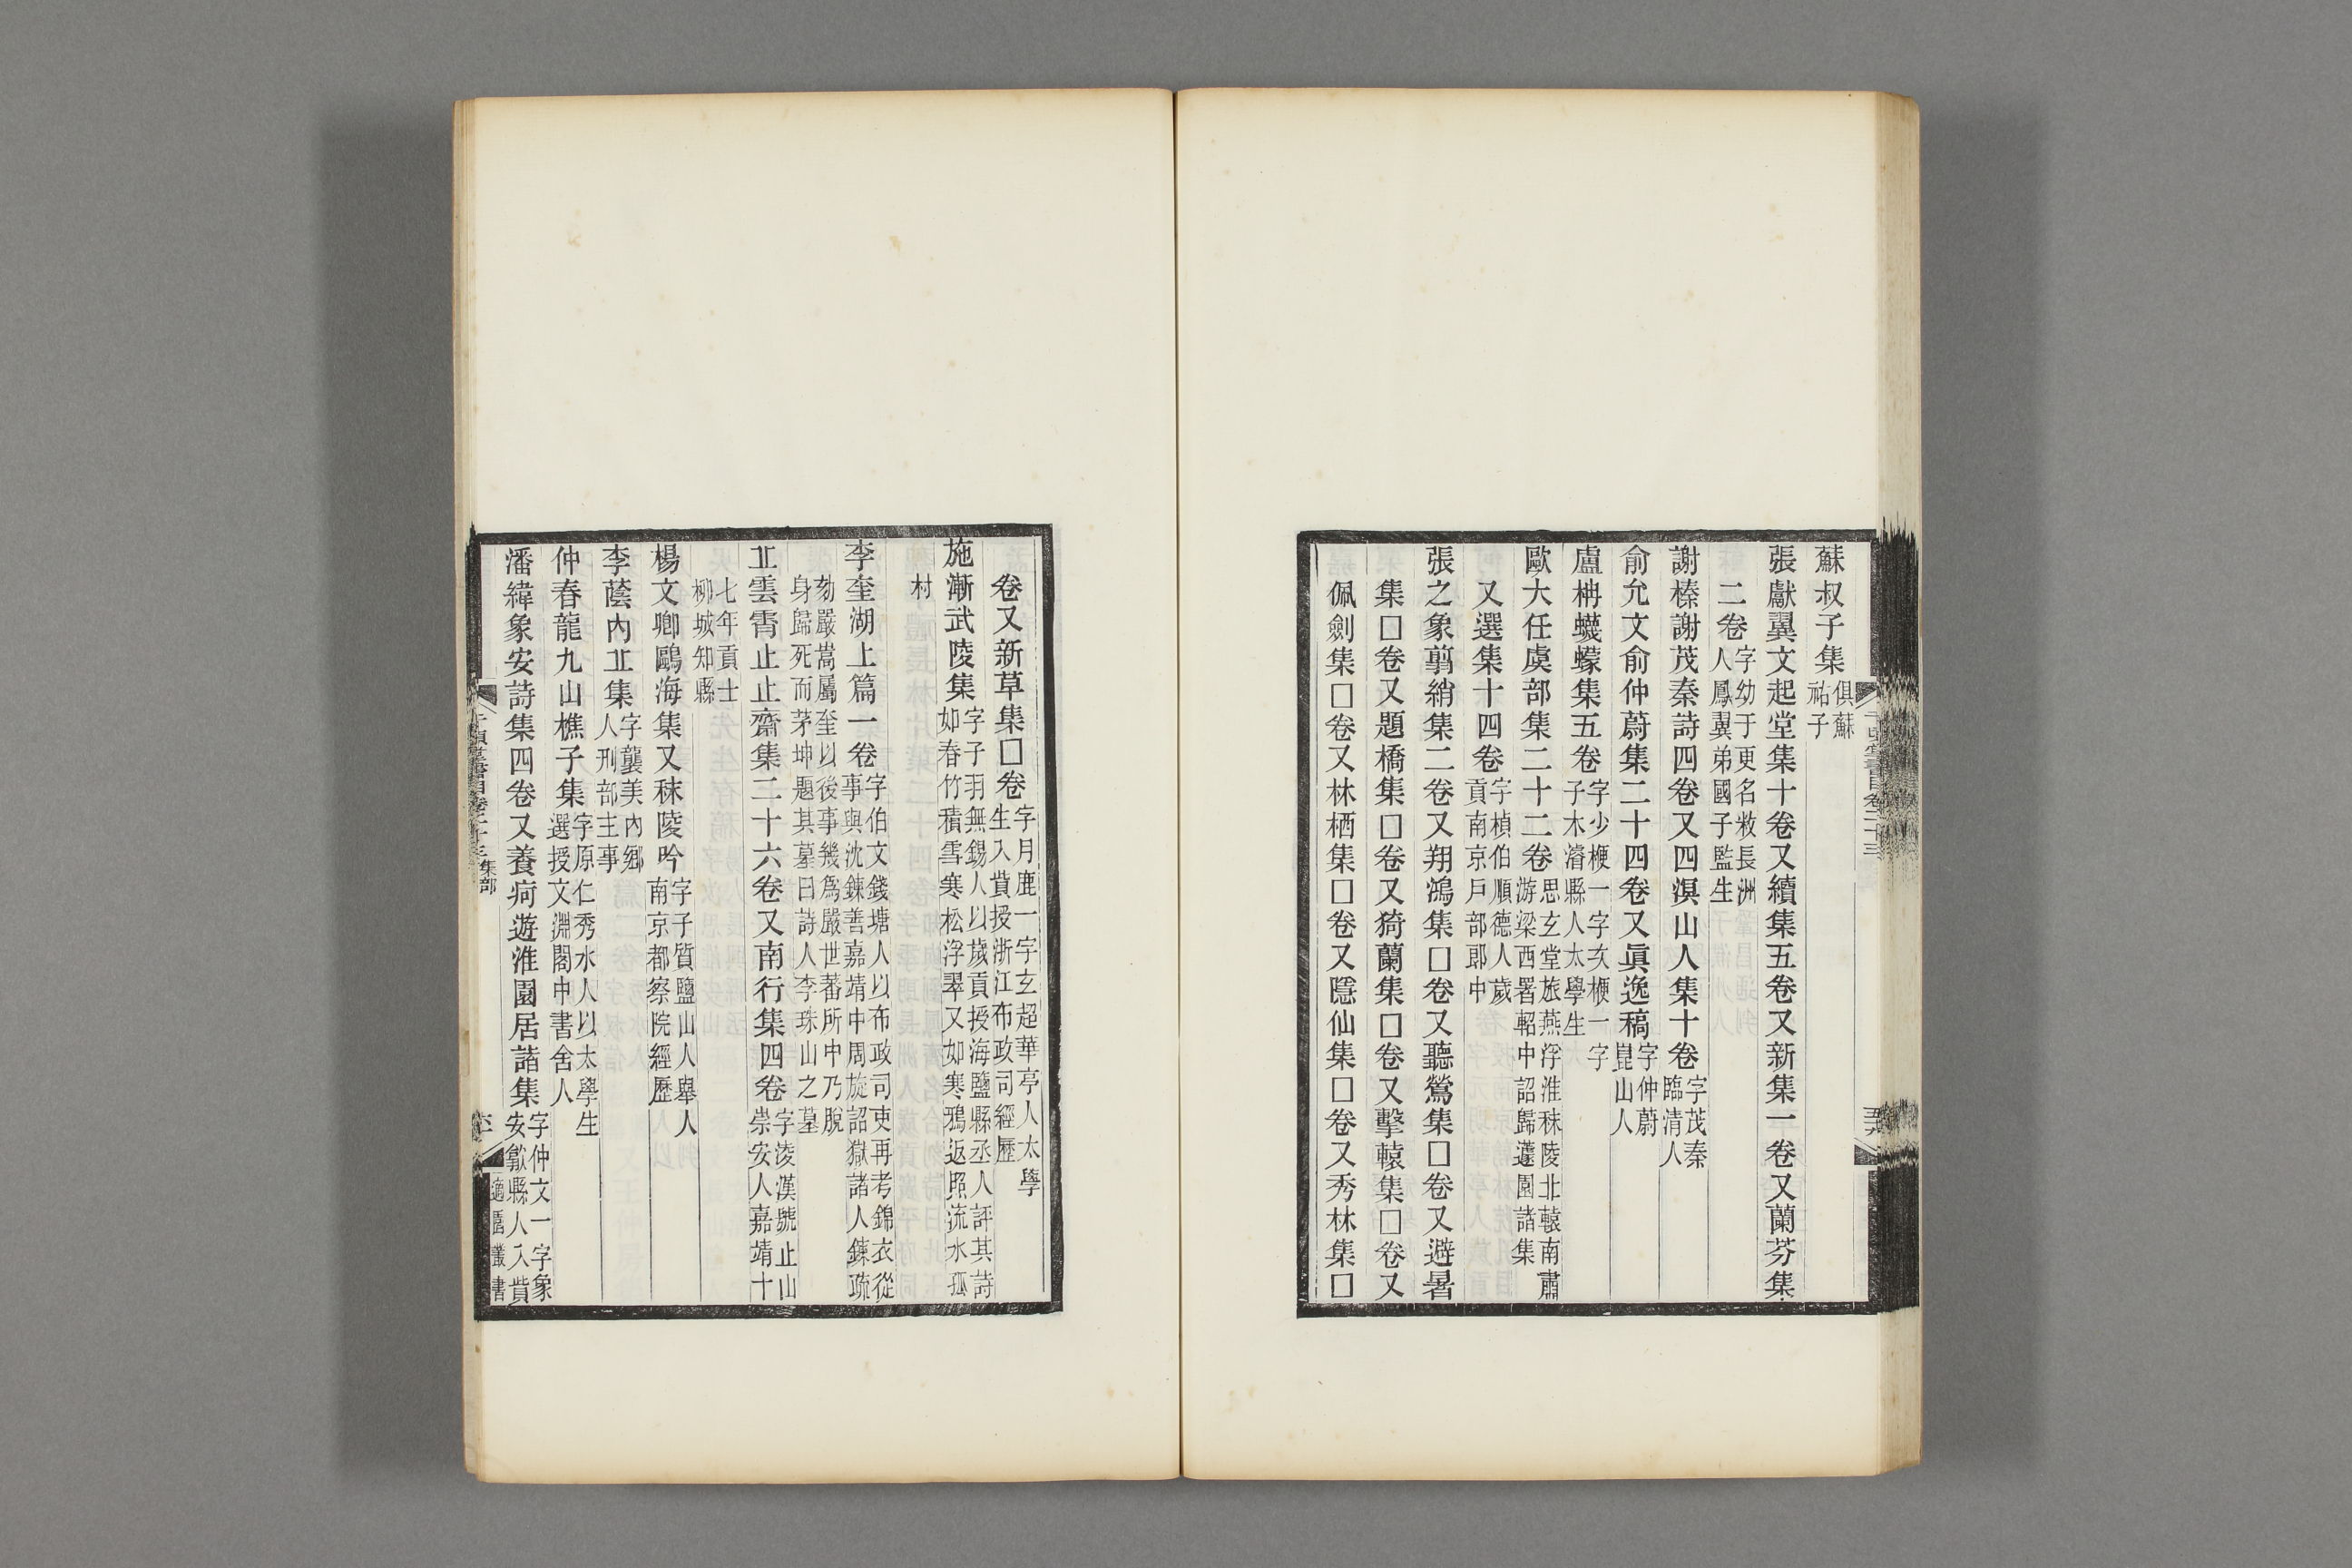 蘇叔子集俱蘇祐子
張獻翼文起堂集十卷又續集五卷又新集一卷又蘭芬集
二卷字幼于更名敉長洲人鳳翼弟國子監生
謝榛謝茂秦詩四卷又四溟山人集十卷字茂秦臨清人
俞允文俞仲蔚集二十四卷又眞逸稿字仲蔚崑山人
盧柟蠛蠓集五卷字少楩一字次楩一字子木濬縣人太學生
歐大任虞部集二十二卷思玄堂旅燕浮淮秣陵北轅南肅游梁西署軺中詔歸蘧園諸集
又選集十四卷字楨伯順德人歲貢南京戶部郎中
張之象翦綃集二卷又翔鴻集□卷又聽鶯集□卷又避暑
集□卷又題橋集□卷又猗蘭集□卷又擊轅集□卷又
佩劍集□卷又林栖集□卷又隱仙集□卷又秀林集□
卷又新草集□卷字月鹿一字玄超華亭人太學生入貲授浙江布政司經歷
施漸武陵集字子羽無錫人以歲貢授海鹽縣丞人評其詩如春竹積雪寒松浮翠又如寒鴉返照流水孤
村
李奎湖上篇一卷字伯文錢塘人以布政司吏再考錦衣從事與沈鍊善嘉靖中周旋詔獄諸人鍊疏
劾嚴嵩屬奎以後事幾爲嚴世蕃所中乃脫身歸死而茅坤題其墓曰詩人李珠山之墓
丘雲霄止止齋集二十六卷又南行集四卷字淩漢號止山崇安人嘉靖十
七年貢士柳城知縣
楊文卿鷗海集又秣陵吟字子質鹽山人舉人南京都察院經歷
李蔭內丘集字襲美內鄉人刑部主事
仲春龍九山樵子集字原仁秀水人以太學生選授文淵閣中書舍人
潘緯象安詩集四卷又養疴遊淮園居諸集字仲文一字象安歙縣人入貲
集部
適園叢書